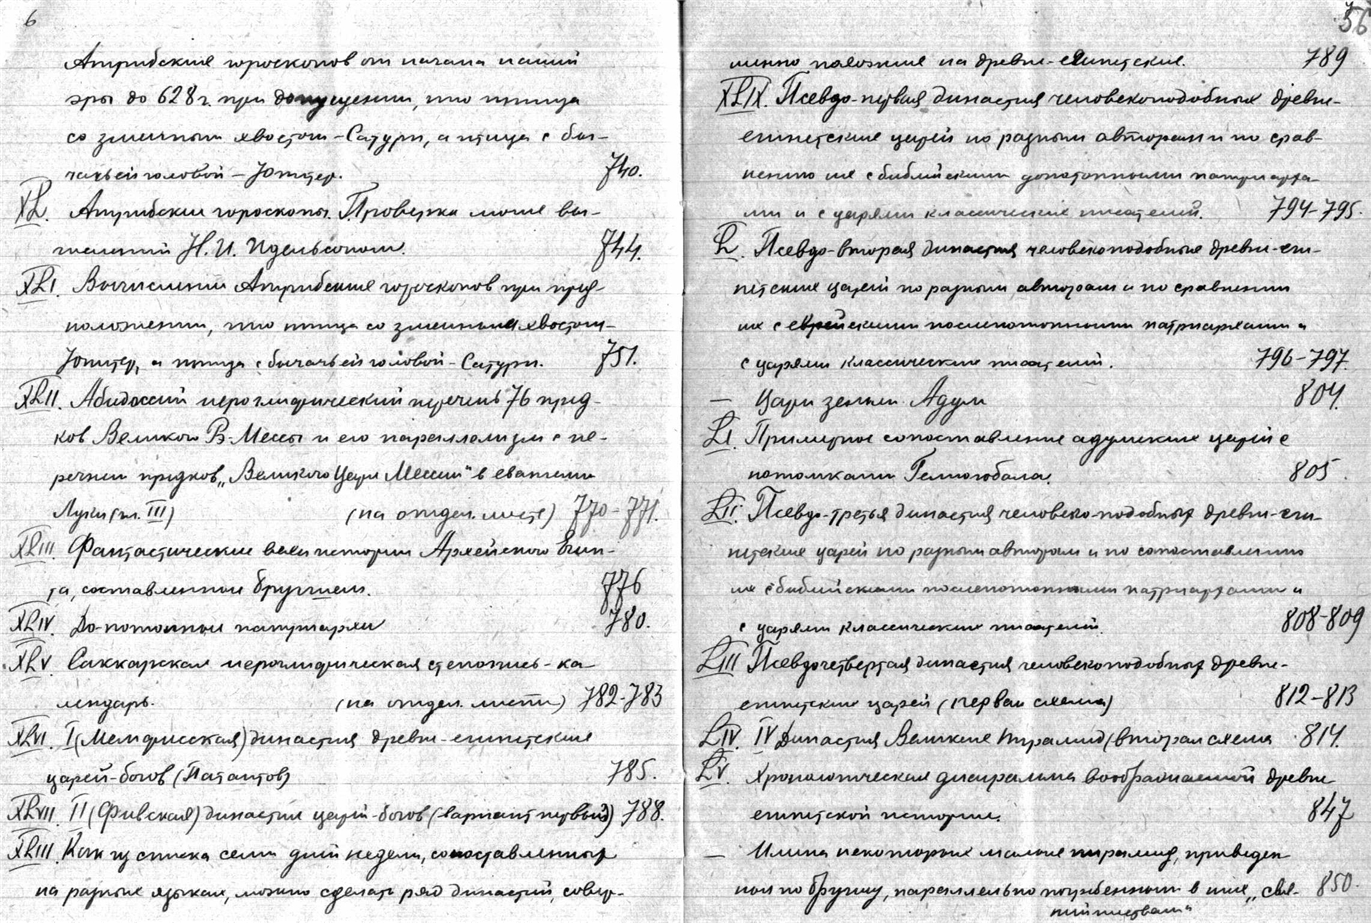 6
Атрибские гороскопов от начала нашей
эры до 628 г. при допущении, что птица
со змеиным хвостом - Сатурн, а птица с бы-
чачьей головой - Юпитер. 740.
XL. Атрибские гороскопы. Проверка моих вы-
числений Н. И. Идельсоном. 744.
XLI. Вычислений Атрибских гороскопов при пред-
положении, что птица со змеиным хвостом -
Юпитер, а птица с бычачьей головой - Сатурн. 751.
XLII. Абидосский иероглифический перечень 76 пред-
ков Великого Рэ-Мессы и его параллелизм с пе-
речнем предков „Великого Царя Мессии" в евангелии
Луки (гл. III) (на отдел. листе) 770-771.
XLIII. Фантастические века истории Архейского Егип-
та, составленные Бругшем. 776
XLIV. Допотопные патриархи 780.
XLV. Саккарская иероглифическая стенопись-ка-
лендарь. (на отдел. листе) 782-783
XLVI. I (Мемфисская) династия древне-египетских
царей-богов (Патаитов) 785.
XLVII. II (Фивская) династия царей-богов (вариант первый) 788.
XLIII. Как из списка семи дней недели, сопоставленных
на разных языках, можно сделать ряд династий, совер-
56
шенно похожих на древне-египетские. 789
XLIX. Псевдо-первая династия человекоподобных древне-
египетских царей по разным авторам и по срав-
нению их с библейскими допотопными патриарха-
ми и с царями классических писателей. 794-795.
L. Псевдо-вторая династия человекоподобных древне-еги-
петских царей по разным авторам и по сравнении
их с еврейскими послепотопными патриархами и
с царями классических писателей. 796-797.
— Цари земли Адум 804.
LI. Примерное сопоставление адумских царей с
потомками Гелиогобала. 805.
LII. Псевдо-третья династия человеко-подобных древне-еги-
петских царей по разным авторам и по сопоставлению
их с библейскими послепотопными патриархами и
с царями классических писателей. 808-809
LIII Псевдочетвертая династия человекоподобных древне-
египетских царей (первая схема) 812-813
LIV. IV Династия Великих пирамид (вторая схема 814.
LV. Хронологическая диаграмма воображаемой древне-
египетской истории. 847
— Имена некоторых малых пирамид, приведен
ном по Бругшу, параллельно погребенным в них „свя- 850.